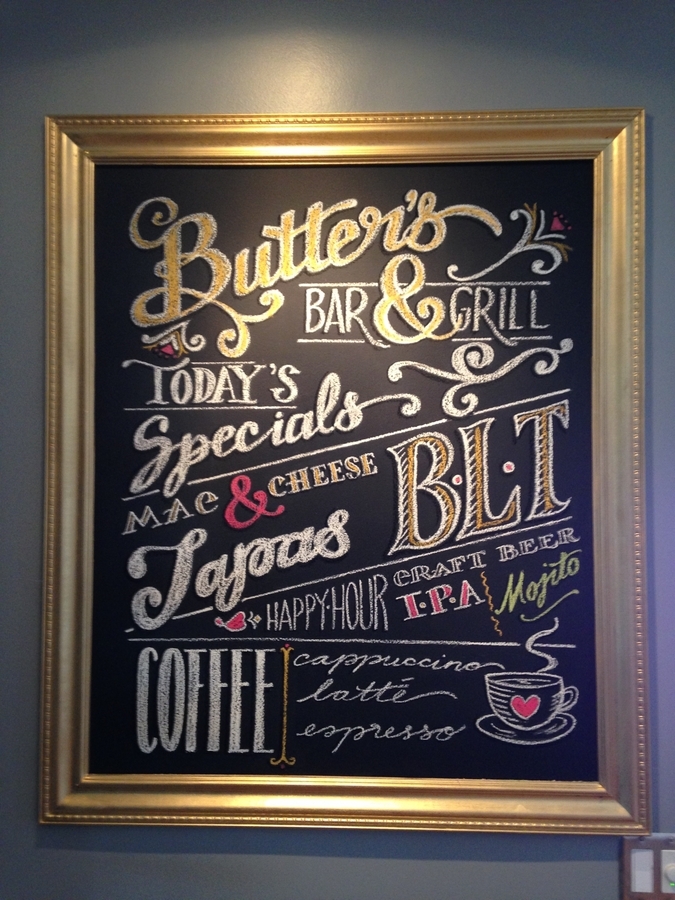 Butter's
BAR & GRILL
TODAY'S
Specials
MAC & CHEESE
B·L·T
Tapas
HAPPY·HOUR
CRAFT BEER
I·P·A
Mojito
COFFEE
cappuccino
latté
espresso